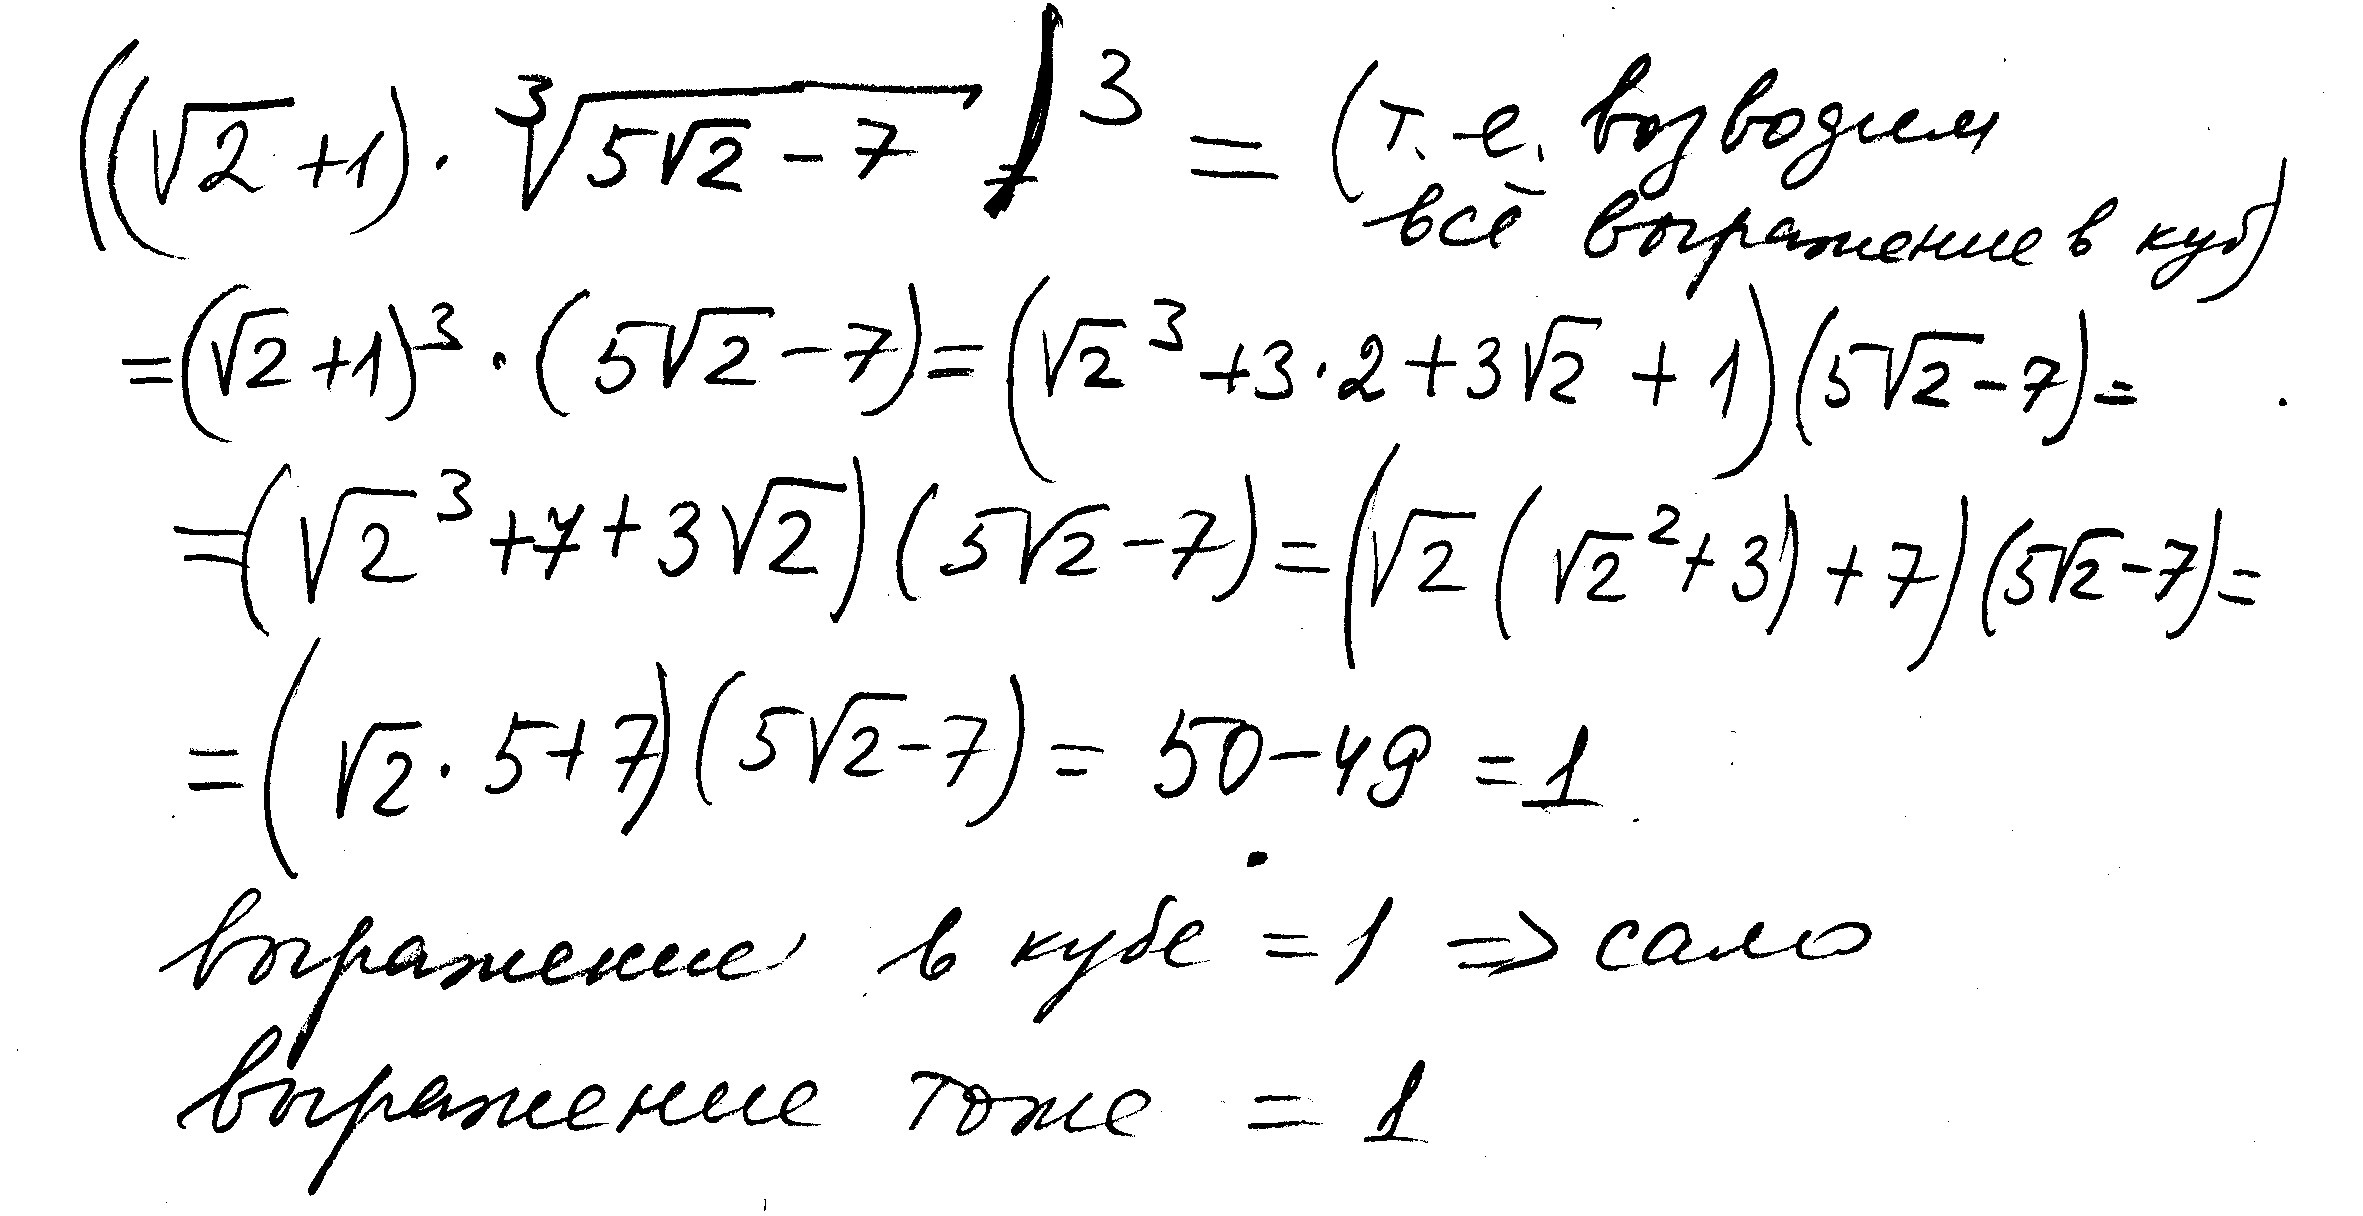 ((√2 + 1) · ∛(5√2 − 7))³ = (т. е. возводим
всё выражение в куб)
= (√2 + 1)³ · (5√2 − 7) = (√2³ + 3·2 + 3√2 + 1)(5√2 − 7) =
= (√2³ + 7 + 3√2)(5√2 − 7) = (√2(√2² + 3) + 7)(5√2 − 7) =
= (√2 · 5 + 7)(5√2 − 7) = 50 − 49 = 1
выражение в кубе = 1 ⇒ само
выражение тоже = 1